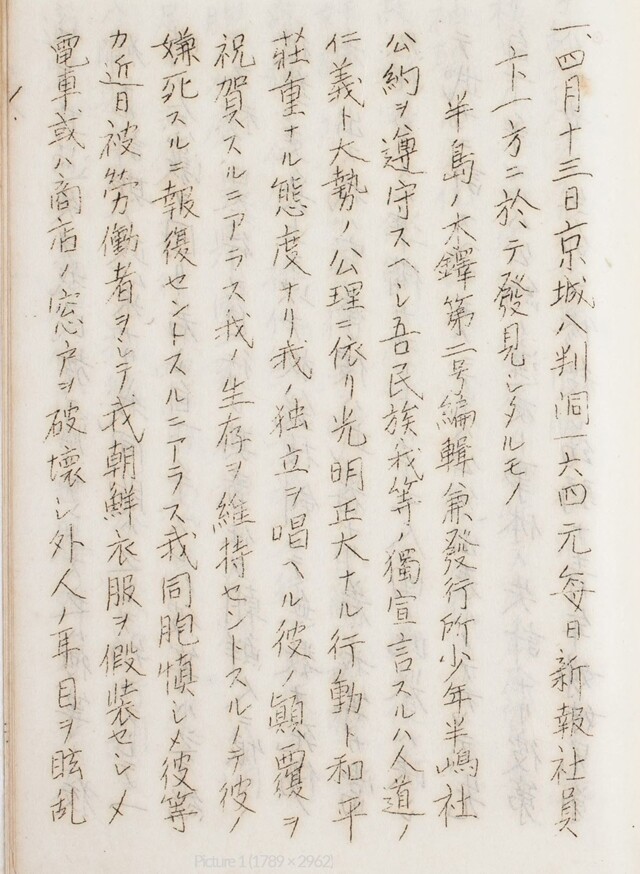 一、四月十三日京城八判洞一六四元每日新報社員
卞一方ニ於テ發見シタルモノ
半島ノ木鐸第二号編輯兼發行所少年半嶋社
公約ヲ遵守スヘシ吾民族我等ノ獨宣言スルハ人道ノ
仁義ト大勢ノ公理ニ依リ光明正大ナル行動ト和平
莊重ナル態度ナリ我ノ独立ヲ唱ヘル彼ノ顚覆ヲ
祝賀スルニアラス我ノ生存ヲ維持セントスルノテ彼ノ
嫌死スルニ報復セントスルニアラス我同胞愼シメ彼等
カ近日被労働者ヲシテ我朝鮮衣服ヲ假裝セシメ
電車、或ハ商店ノ窓戸ヲ破壞シ外人ノ耳目ヲ眩乱
Picture 1 (1789 × 2962)